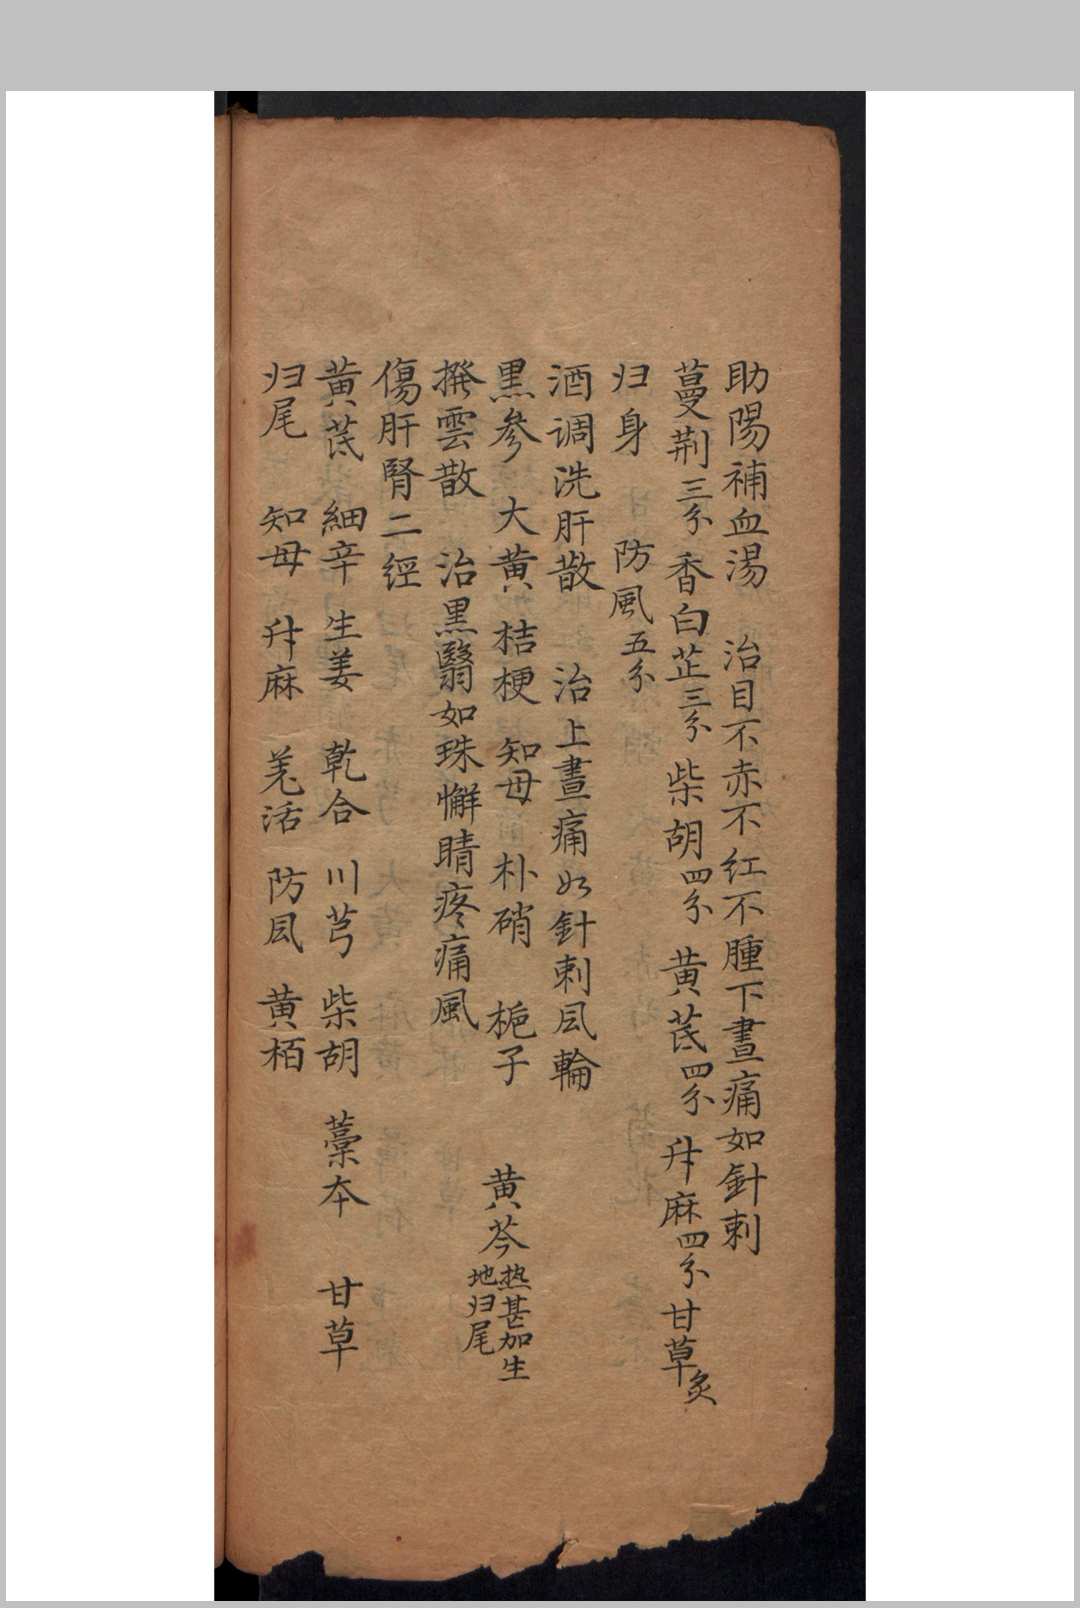 助陽補血湯 治目不赤不紅不腫下晝痛如針刺
蔓荆三分 香白芷三分 柴胡四分 黄芪四分 升麻四分 甘草炙
归身 防風五分
酒调洗肝散 治上晝痛如針刺凨輪
黒參 大黄 桔梗 知母 朴硝 梔子 黄芩热甚加生地归尾
撥雲散 治黒翳如珠懈睛疼痛風
傷肝腎二經
黄芪 細辛 生姜 乾合 川芎 柴胡 藁本 甘草
归尾 知母 升麻 羌活 防凨 黄栢